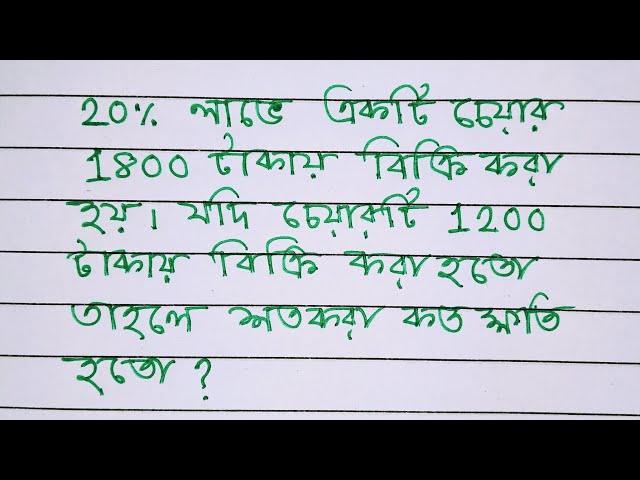 20% লাভে একটি চেয়ার
1800 টাকায় বিক্রি করা
হয়। যদি চেয়ারটি 1200
টাকায় বিক্রি করা হতো
তাহলে শতকরা কত ক্ষতি
হতো?